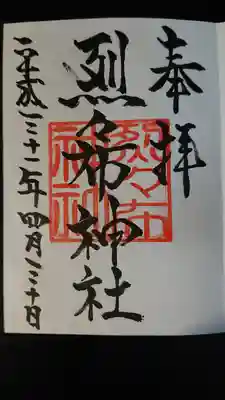 奉拝
烈々布神社
平成三十一年四月三十日
烈々布神社